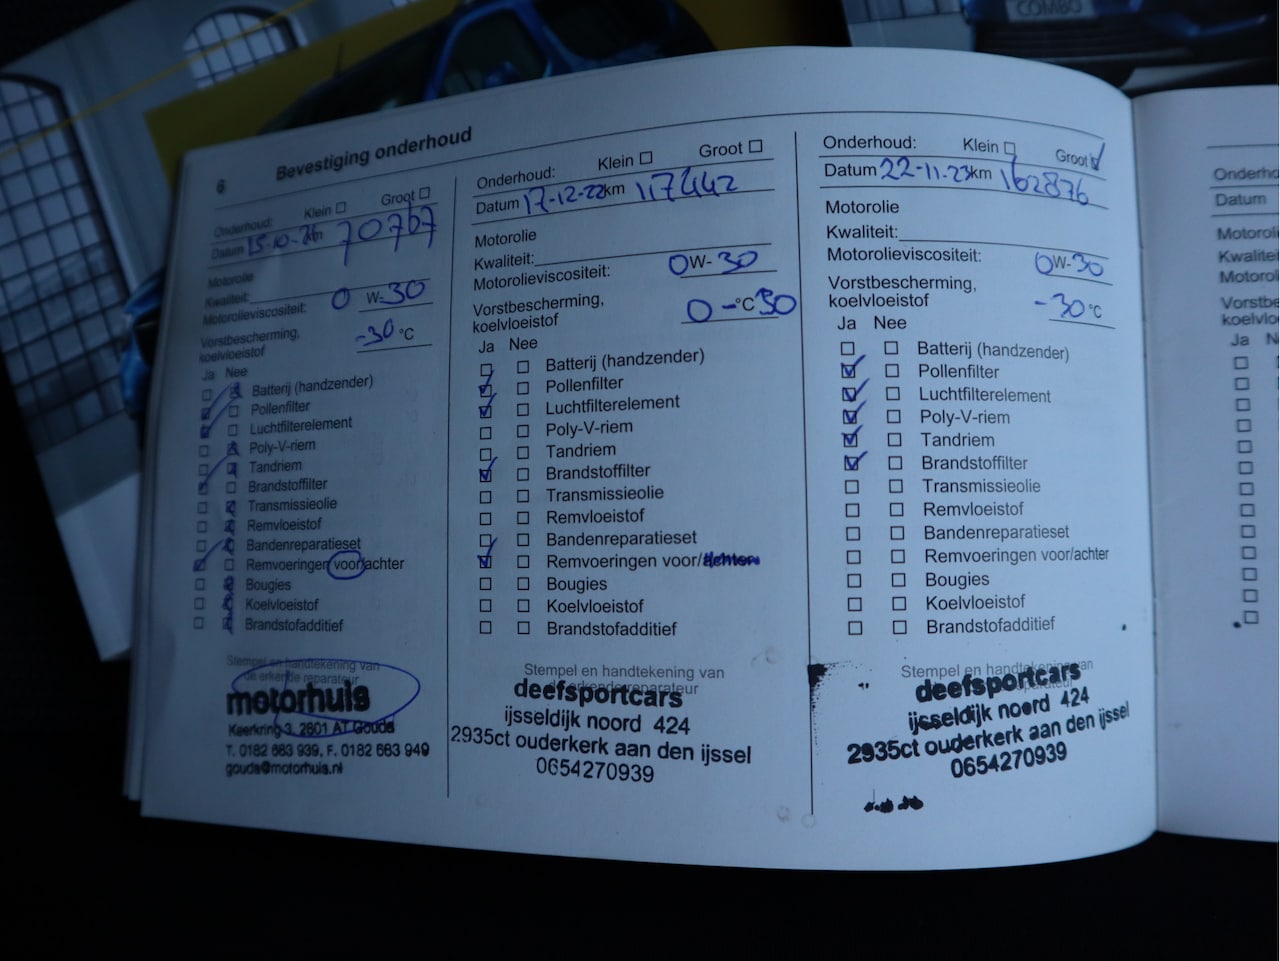 COMBO
6 Bevestiging onderhoud
Onderhoud: Klein Groot
Datum 15-10- km 70767
Motorolie
Kwaliteit:
Motorolieviscositeit: 0 W-30
Vorstbescherming,
koelvloeistof -30 °C
Ja Nee
Batterij (handzender)
Pollenfilter
Luchtfilterelement
Poly-V-riem
Tandriem
Brandstoffilter
Transmissieolie
Remvloeistof
Bandenreparatieset
Remvoeringen voor/achter
Bougies
Koelvloeistof
Brandstofadditief
Stempel en handtekening van
de erkende reparateur
motorhuis
Keerkring 3, 2801 AT Gouda
T. 0182 683 939, F. 0182 683 949
gouda@motorhuis.nl
Onderhoud: Klein Groot
Datum 17-12-22 km 117442
Motorolie
Kwaliteit:
Motorolieviscositeit: 0W-30
Vorstbescherming,
koelvloeistof 0 -°C 30
Ja Nee
Batterij (handzender)
Pollenfilter
Luchtfilterelement
Poly-V-riem
Tandriem
Brandstoffilter
Transmissieolie
Remvloeistof
Bandenreparatieset
Remvoeringen voor/achter
Bougies
Koelvloeistof
Brandstofadditief
Stempel en handtekening van
de erkende reparateur
deefsportcars
ijsseldijk noord 424
2935ct ouderkerk aan den ijssel
0654270939
Onderhoud: Klein Groot
Datum 22-11-23 km 162876
Motorolie
Kwaliteit:
Motorolieviscositeit: 0W-30
Vorstbescherming,
koelvloeistof -30 °C
Ja Nee
Batterij (handzender)
Pollenfilter
Luchtfilterelement
Poly-V-riem
Tandriem
Brandstoffilter
Transmissieolie
Remvloeistof
Bandenreparatieset
Remvoeringen voor/achter
Bougies
Koelvloeistof
Brandstofadditief
Stempel en handtekening van
reparateur
deefsportcars
ijsseldijk noord 424
2935ct ouderkerk aan den ijssel
0654270939
Onderho
Datum
Motorol
Kwalitei
Motorol
Vorstbe
koelvlo
Ja N